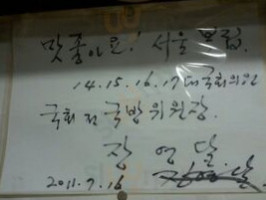 맛 좋아요! 서울 본점.
14.15.16.17대 국회의원
국회 전 국방위원장.
장 영 달
2011.7.16